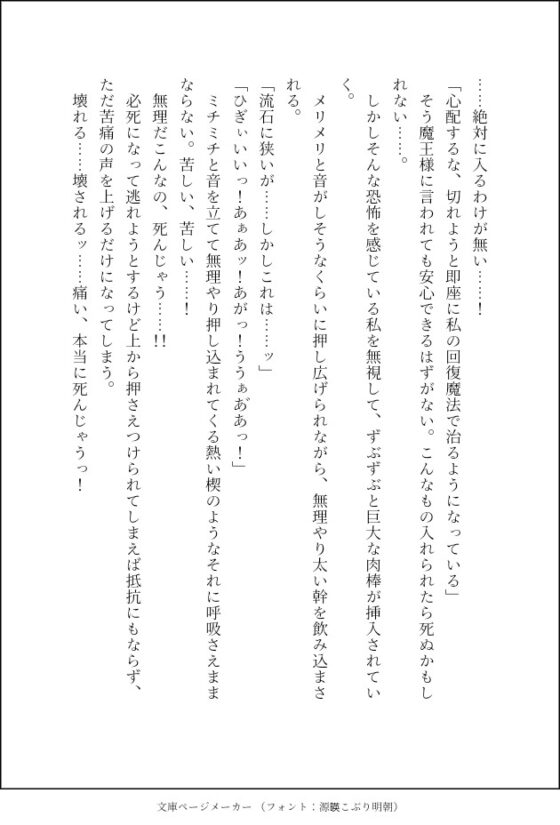 ……絶対に入るわけが無い……！
「心配するな、切れようと即座に私の回復魔法で治るようになっている」
そう魔王様に言われても安心できるはずがない。こんなもの入れられたら死ぬかもし
れない……。
しかしそんな恐怖を感じている私を無視して、ずぶずぶと巨大な肉棒が挿入されてい
く。
メリメリと音がしそうなくらいに押し広げられながら、無理やり太い幹を飲み込まさ
れる。
「流石に狭いが……しかしこれは……ッ」
「ひぎぃいいっ！あぁあッ！あがっ！ううぁあ゙あっ！」
ミチミチと音を立てて無理やり押し込まれてくる熱い楔のようなそれに呼吸さえまま
ならない。苦しい、苦しい……！
無理だこんなの、死んじゃう……!!
必死になって逃れようとするけど上から押さえつけられてしまえば抵抗にもならず、
ただ苦痛の声を上げるだけになってしまう。
壊れる……壊されるッ……痛い、本当に死んじゃうっ！
文庫ページメーカー（フォント：源暎こぶり明朝）